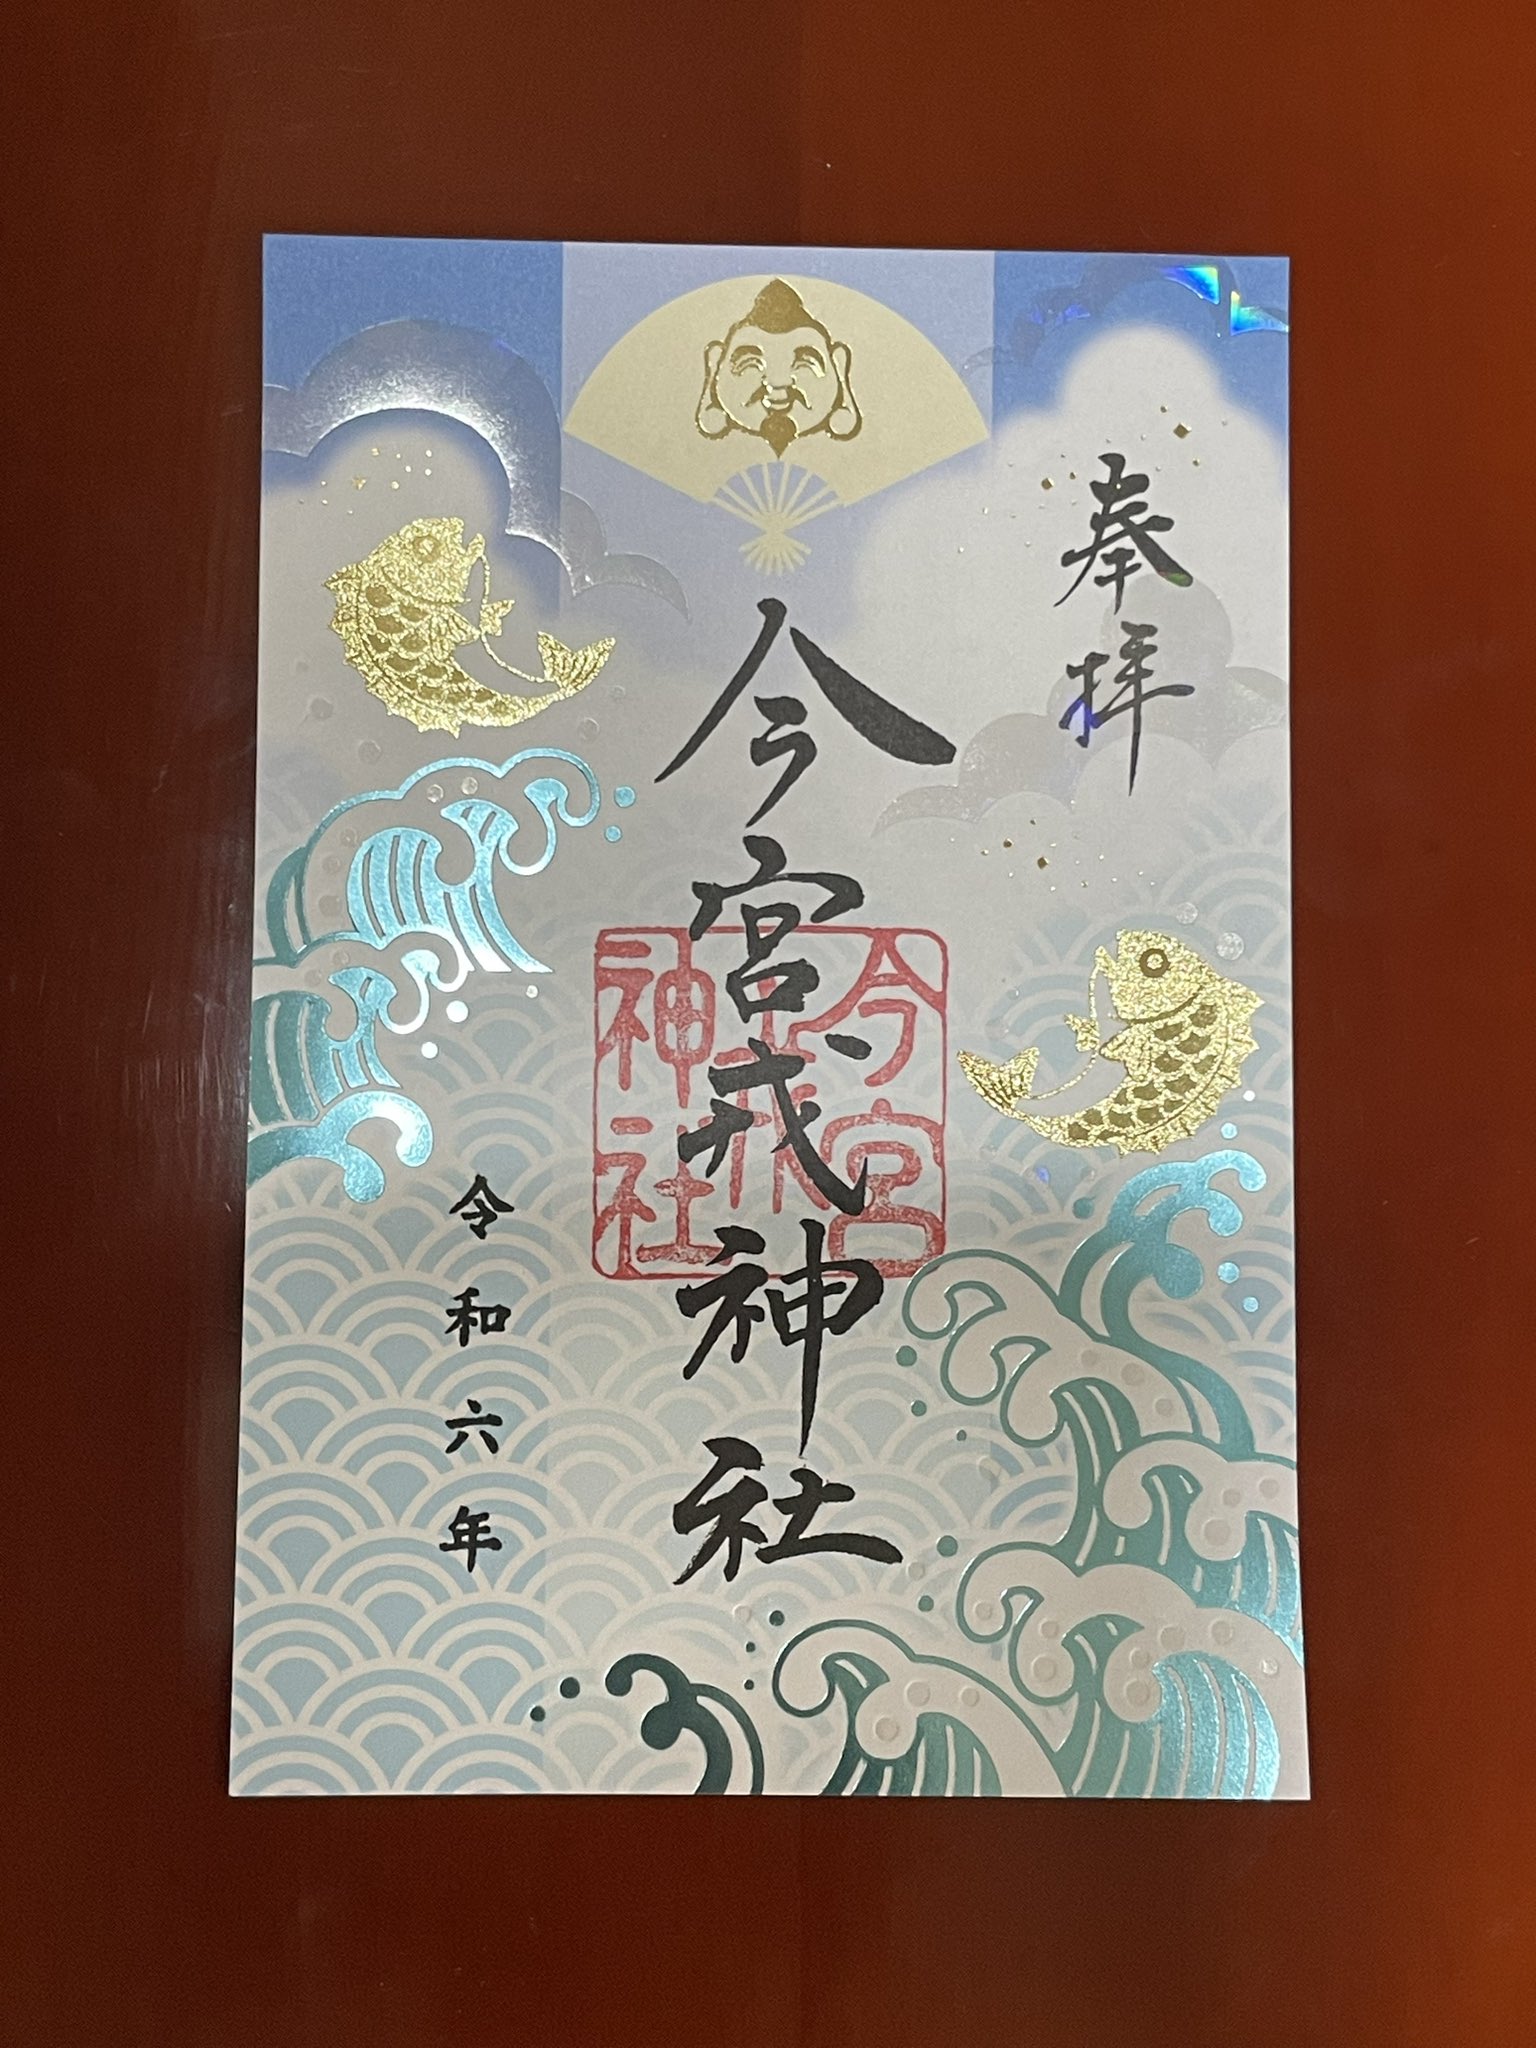 奉拝
今宮戎神社
今宮
戎
神社
令和六年